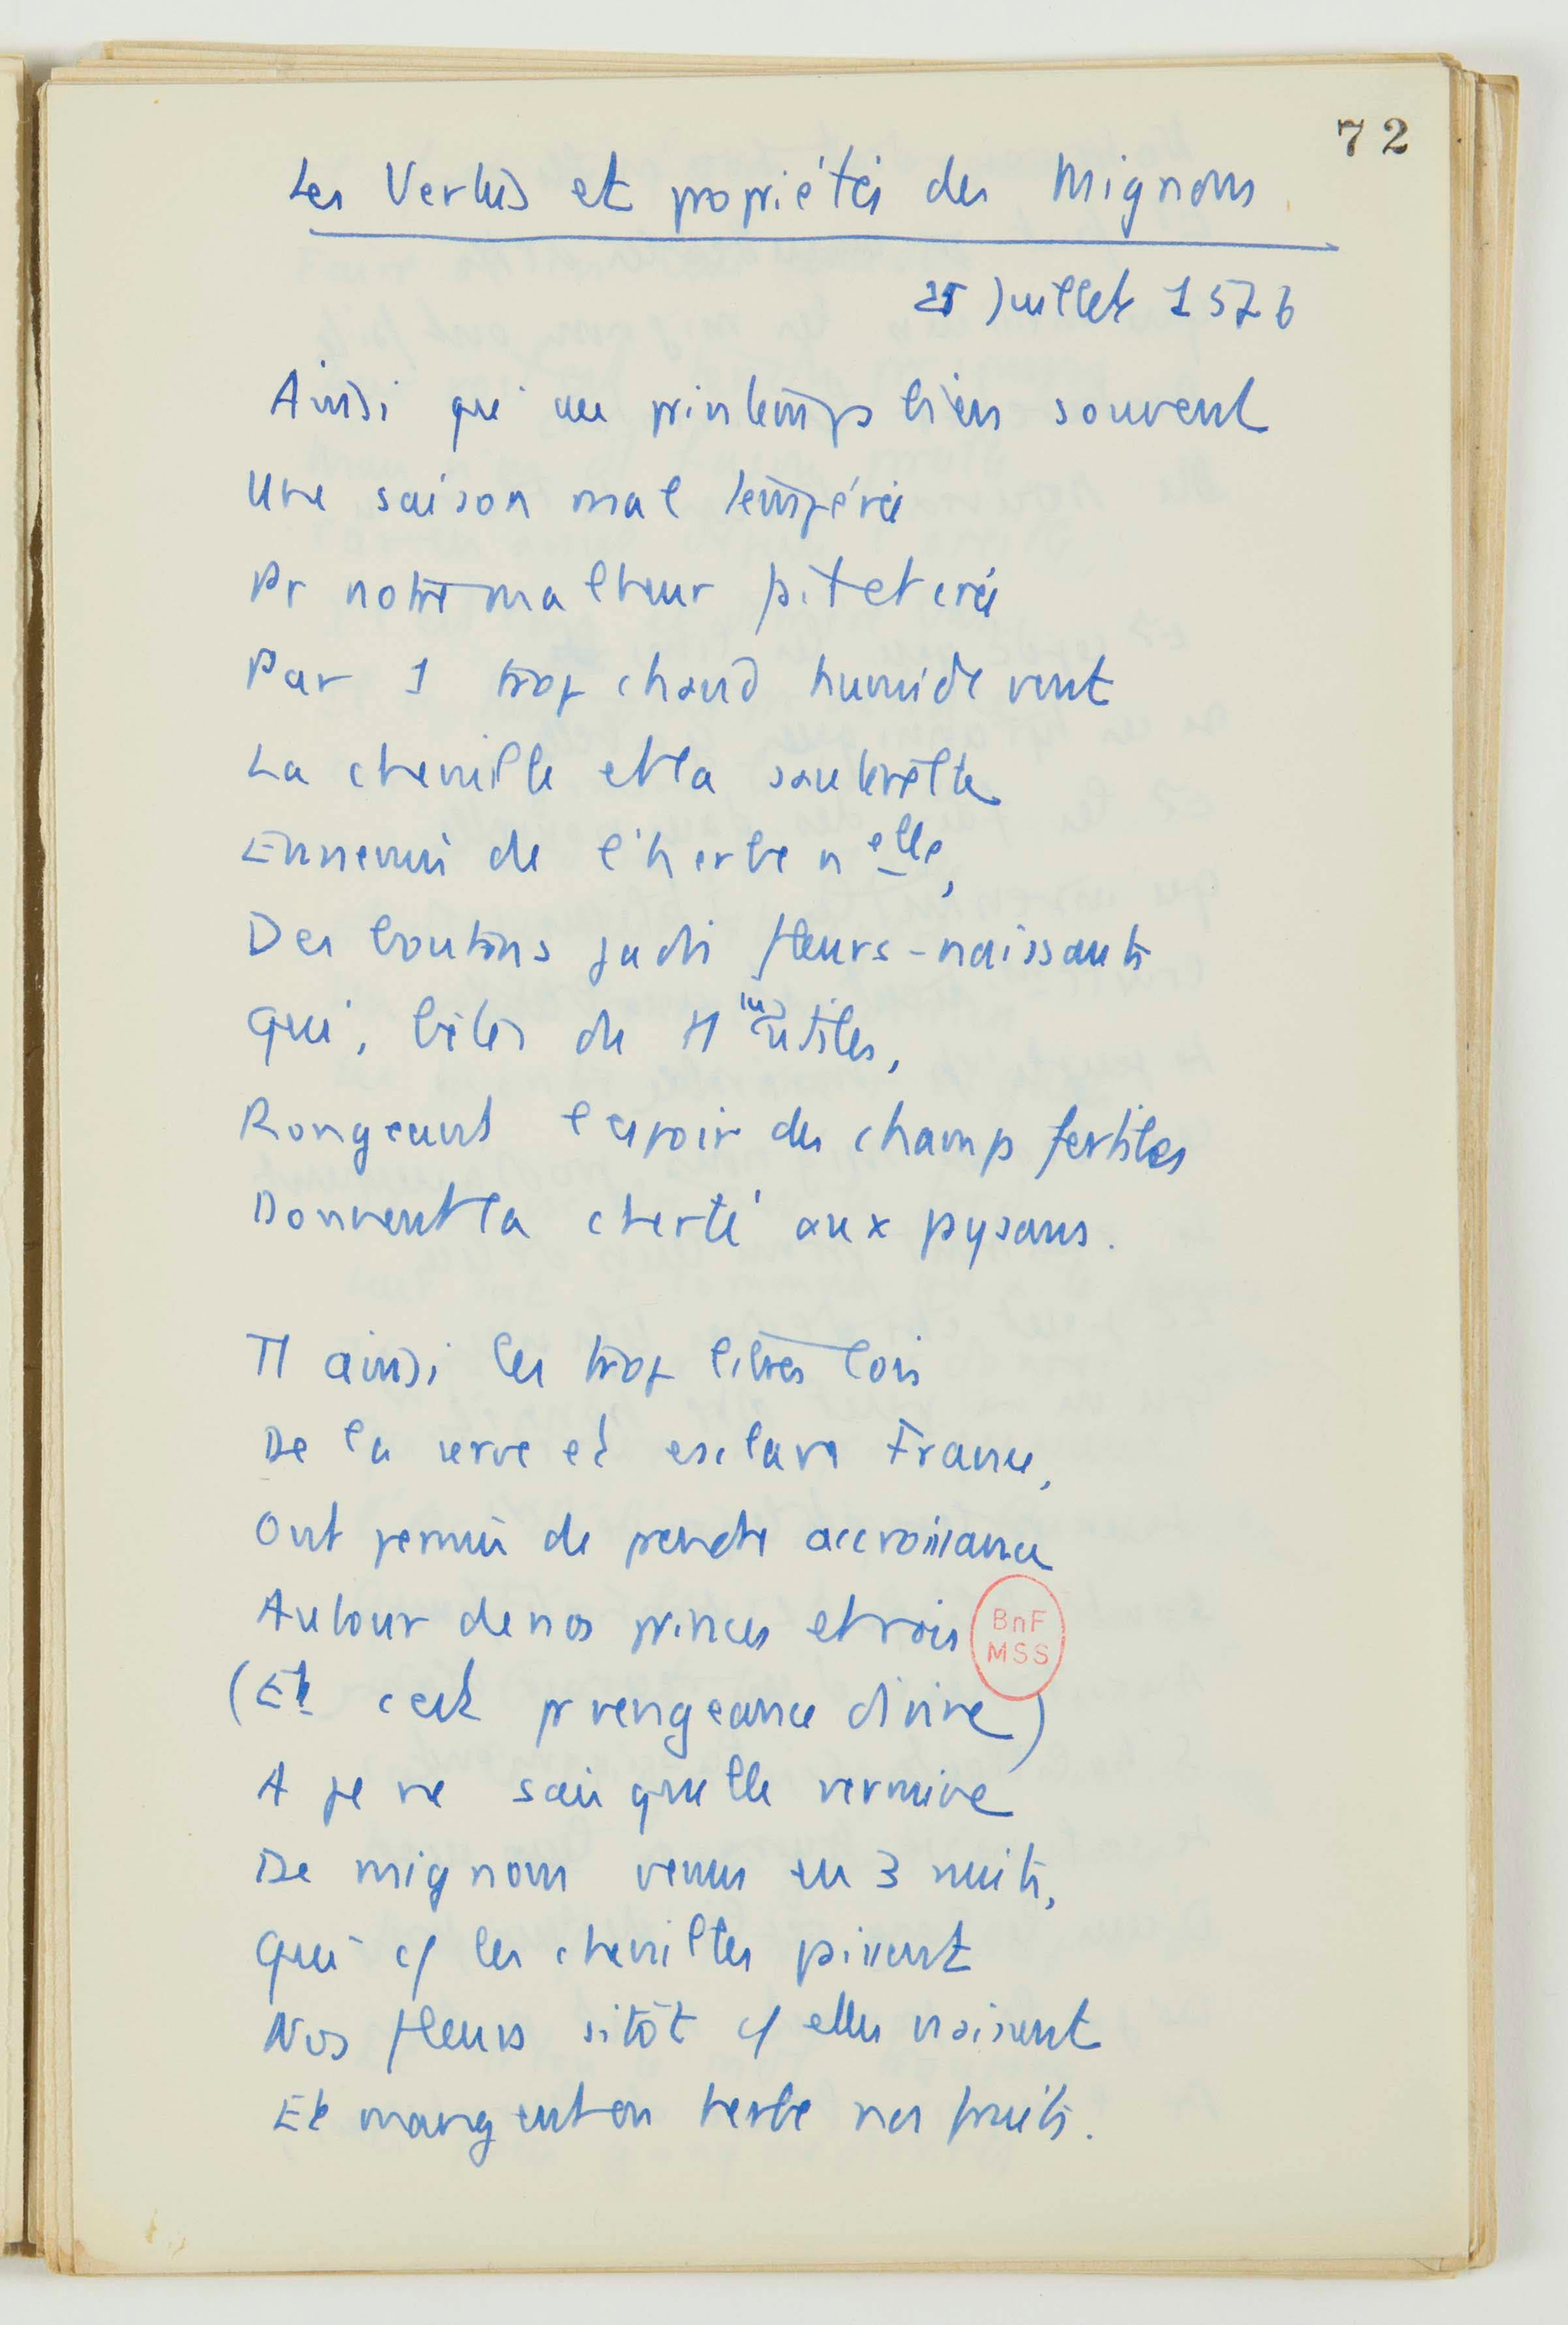 72
Les Vertus et propriétés des Mignons
25 Juillet 1576
Ainsi qu'au printemps bien souvent
Une saison mal tempérée
Pr notre malheur pit et crée
Par 1 trop chaud humide vent
La chenille et la sauterelle
Ennemis de l'herbe nelle,
Des boutons jadis fleurs-naissants
Qui, bêtes du tt inutiles,
Rongeant l'espoir des champs fertiles
Donnent la cherté aux pysans.
Tt ainsi les trop libres lois
De la serve et esclave France,
Ont permis de prendre accroissance
Autour de nos princes et rois
BnF
MSS
(Et c'est pr vengeance divine)
A je ne sais quelle vermine
De mignons venus en 3 nuits,
Qui cs les chenilles pissent
Nos fleurs sitôt q/ elles naissent
Et mangent en herbe nos fruits.